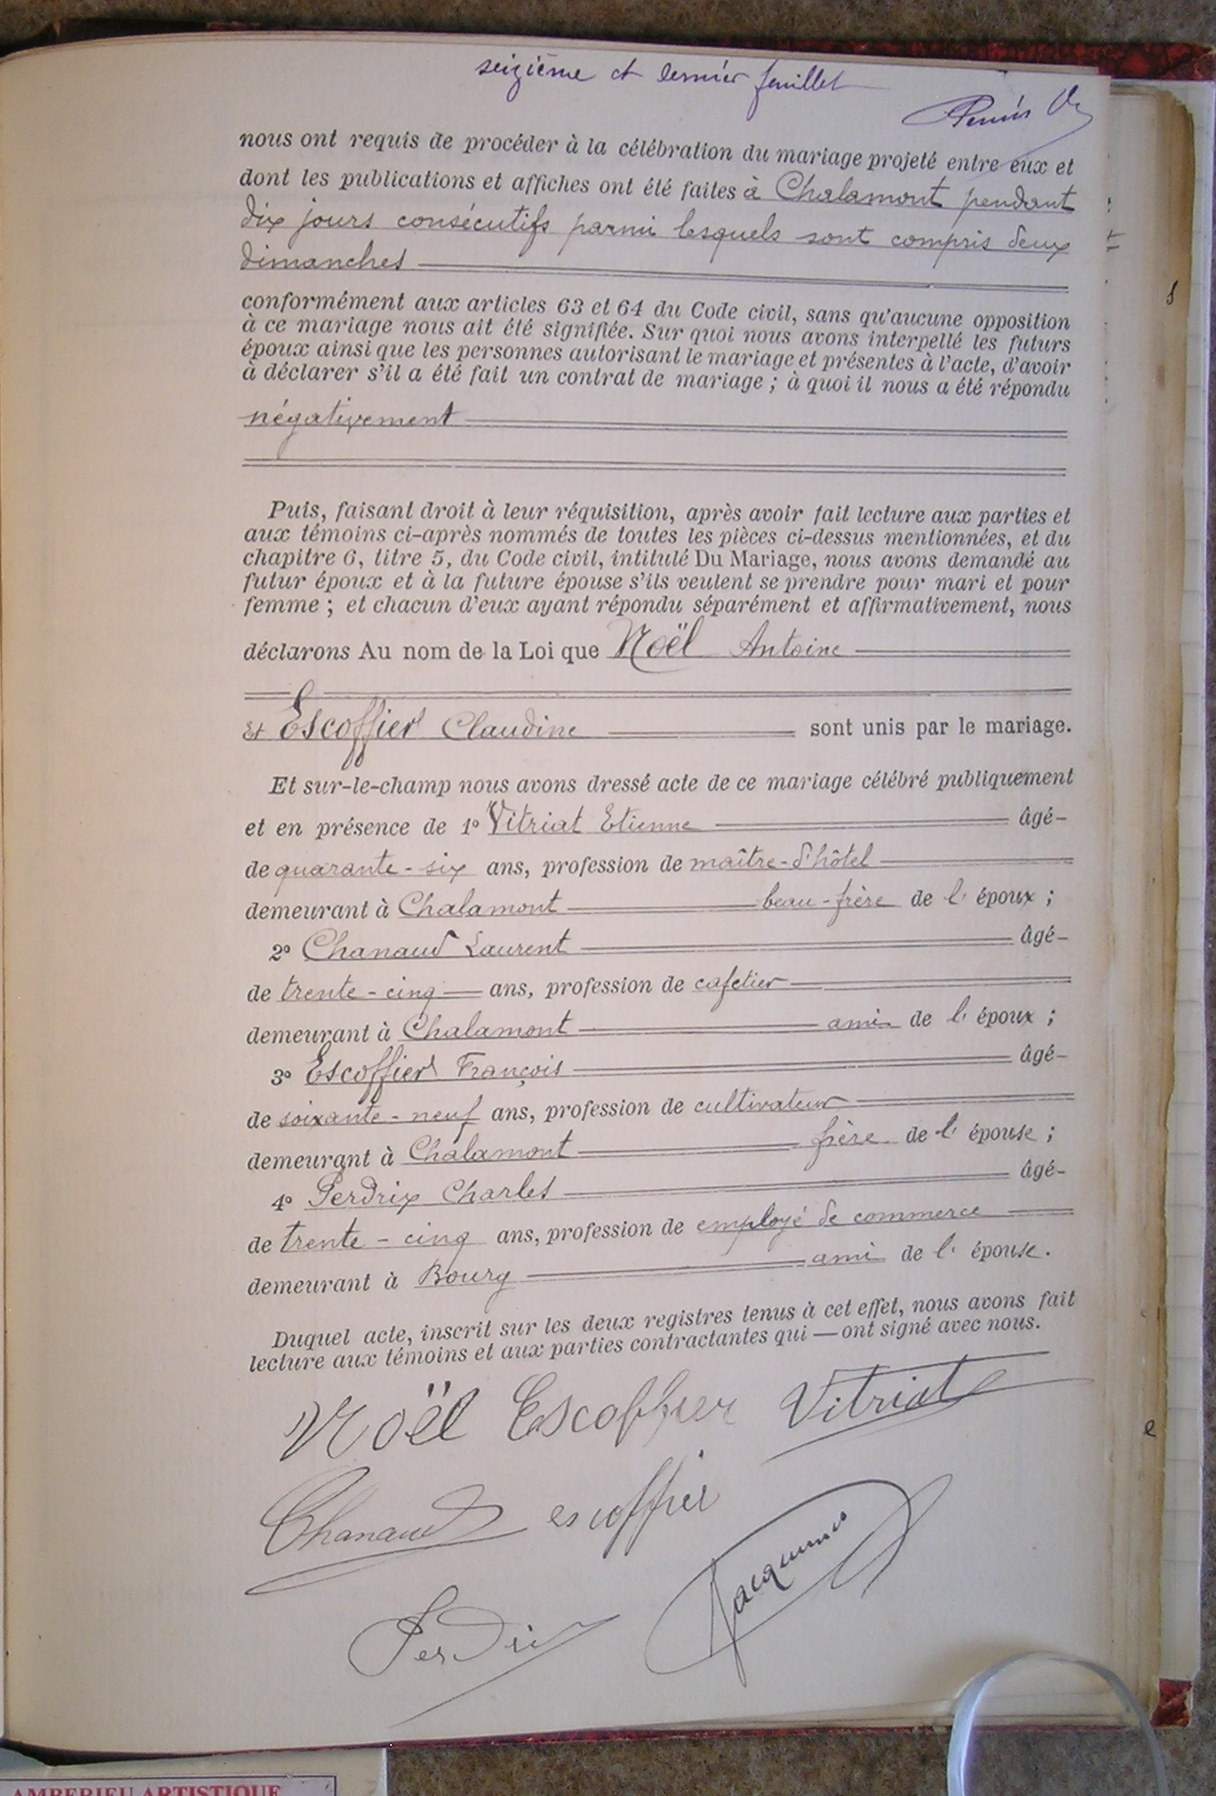 seizième et dernier feuillet
nous ont requis de procéder à la célébration du mariage projeté entre eux et
dont les publications et affiches ont été faites à Chalamont pendant
dix jours consécutifs parmi lesquels sont compris deux
dimanches
conformément aux articles 63 et 64 du Code civil, sans qu'aucune opposition
à ce mariage nous ait été signifiée. Sur quoi nous avons interpellé les futurs
époux ainsi que les personnes autorisant le mariage et présentes à l'acte, d'avoir
à déclarer s'il a été fait un contrat de mariage ; à quoi il nous a été répondu
négativement
Puis, faisant droit à leur réquisition, après avoir fait lecture aux parties et
aux témoins ci-après nommés de toutes les pièces ci-dessus mentionnées, et du
chapitre 6, titre 5, du Code civil, intitulé Du Mariage, nous avons demandé au
futur époux et à la future épouse s'ils veulent se prendre pour mari et pour
femme ; et chacun d'eux ayant répondu séparément et affirmativement, nous
déclarons Au nom de la Loi que Noël Antoine
et Escoffier Claudine sont unis par le mariage.
Et sur-le-champ nous avons dressé acte de ce mariage célébré publiquement
et en présence de 1° Vitriat Etienne âgé
de quarante-six ans, profession de maître-d'hôtel
demeurant à Chalamont beau-frère de l'époux ;
2° Chanaud Laurent âgé
de trente-cinq ans, profession de cafetier
demeurant à Chalamont ami de l'époux ;
3° Escoffier François âgé
de soixante-neuf ans, profession de cultivateur
demeurant à Chalamont frère de l'épouse ;
4° Perdrix Charles âgé
de trente-cinq ans, profession de employé de commerce
demeurant à Bourg ami de l'épouse.
Duquel acte, inscrit sur les deux registres tenus à cet effet, nous avons fait
lecture aux témoins et aux parties contractantes qui — ont signé avec nous.
Noël Escoffier Vitriat
Chanaud escoffier
Jacquemes
Perdrix
AMBERIEU ARTISTIQUE